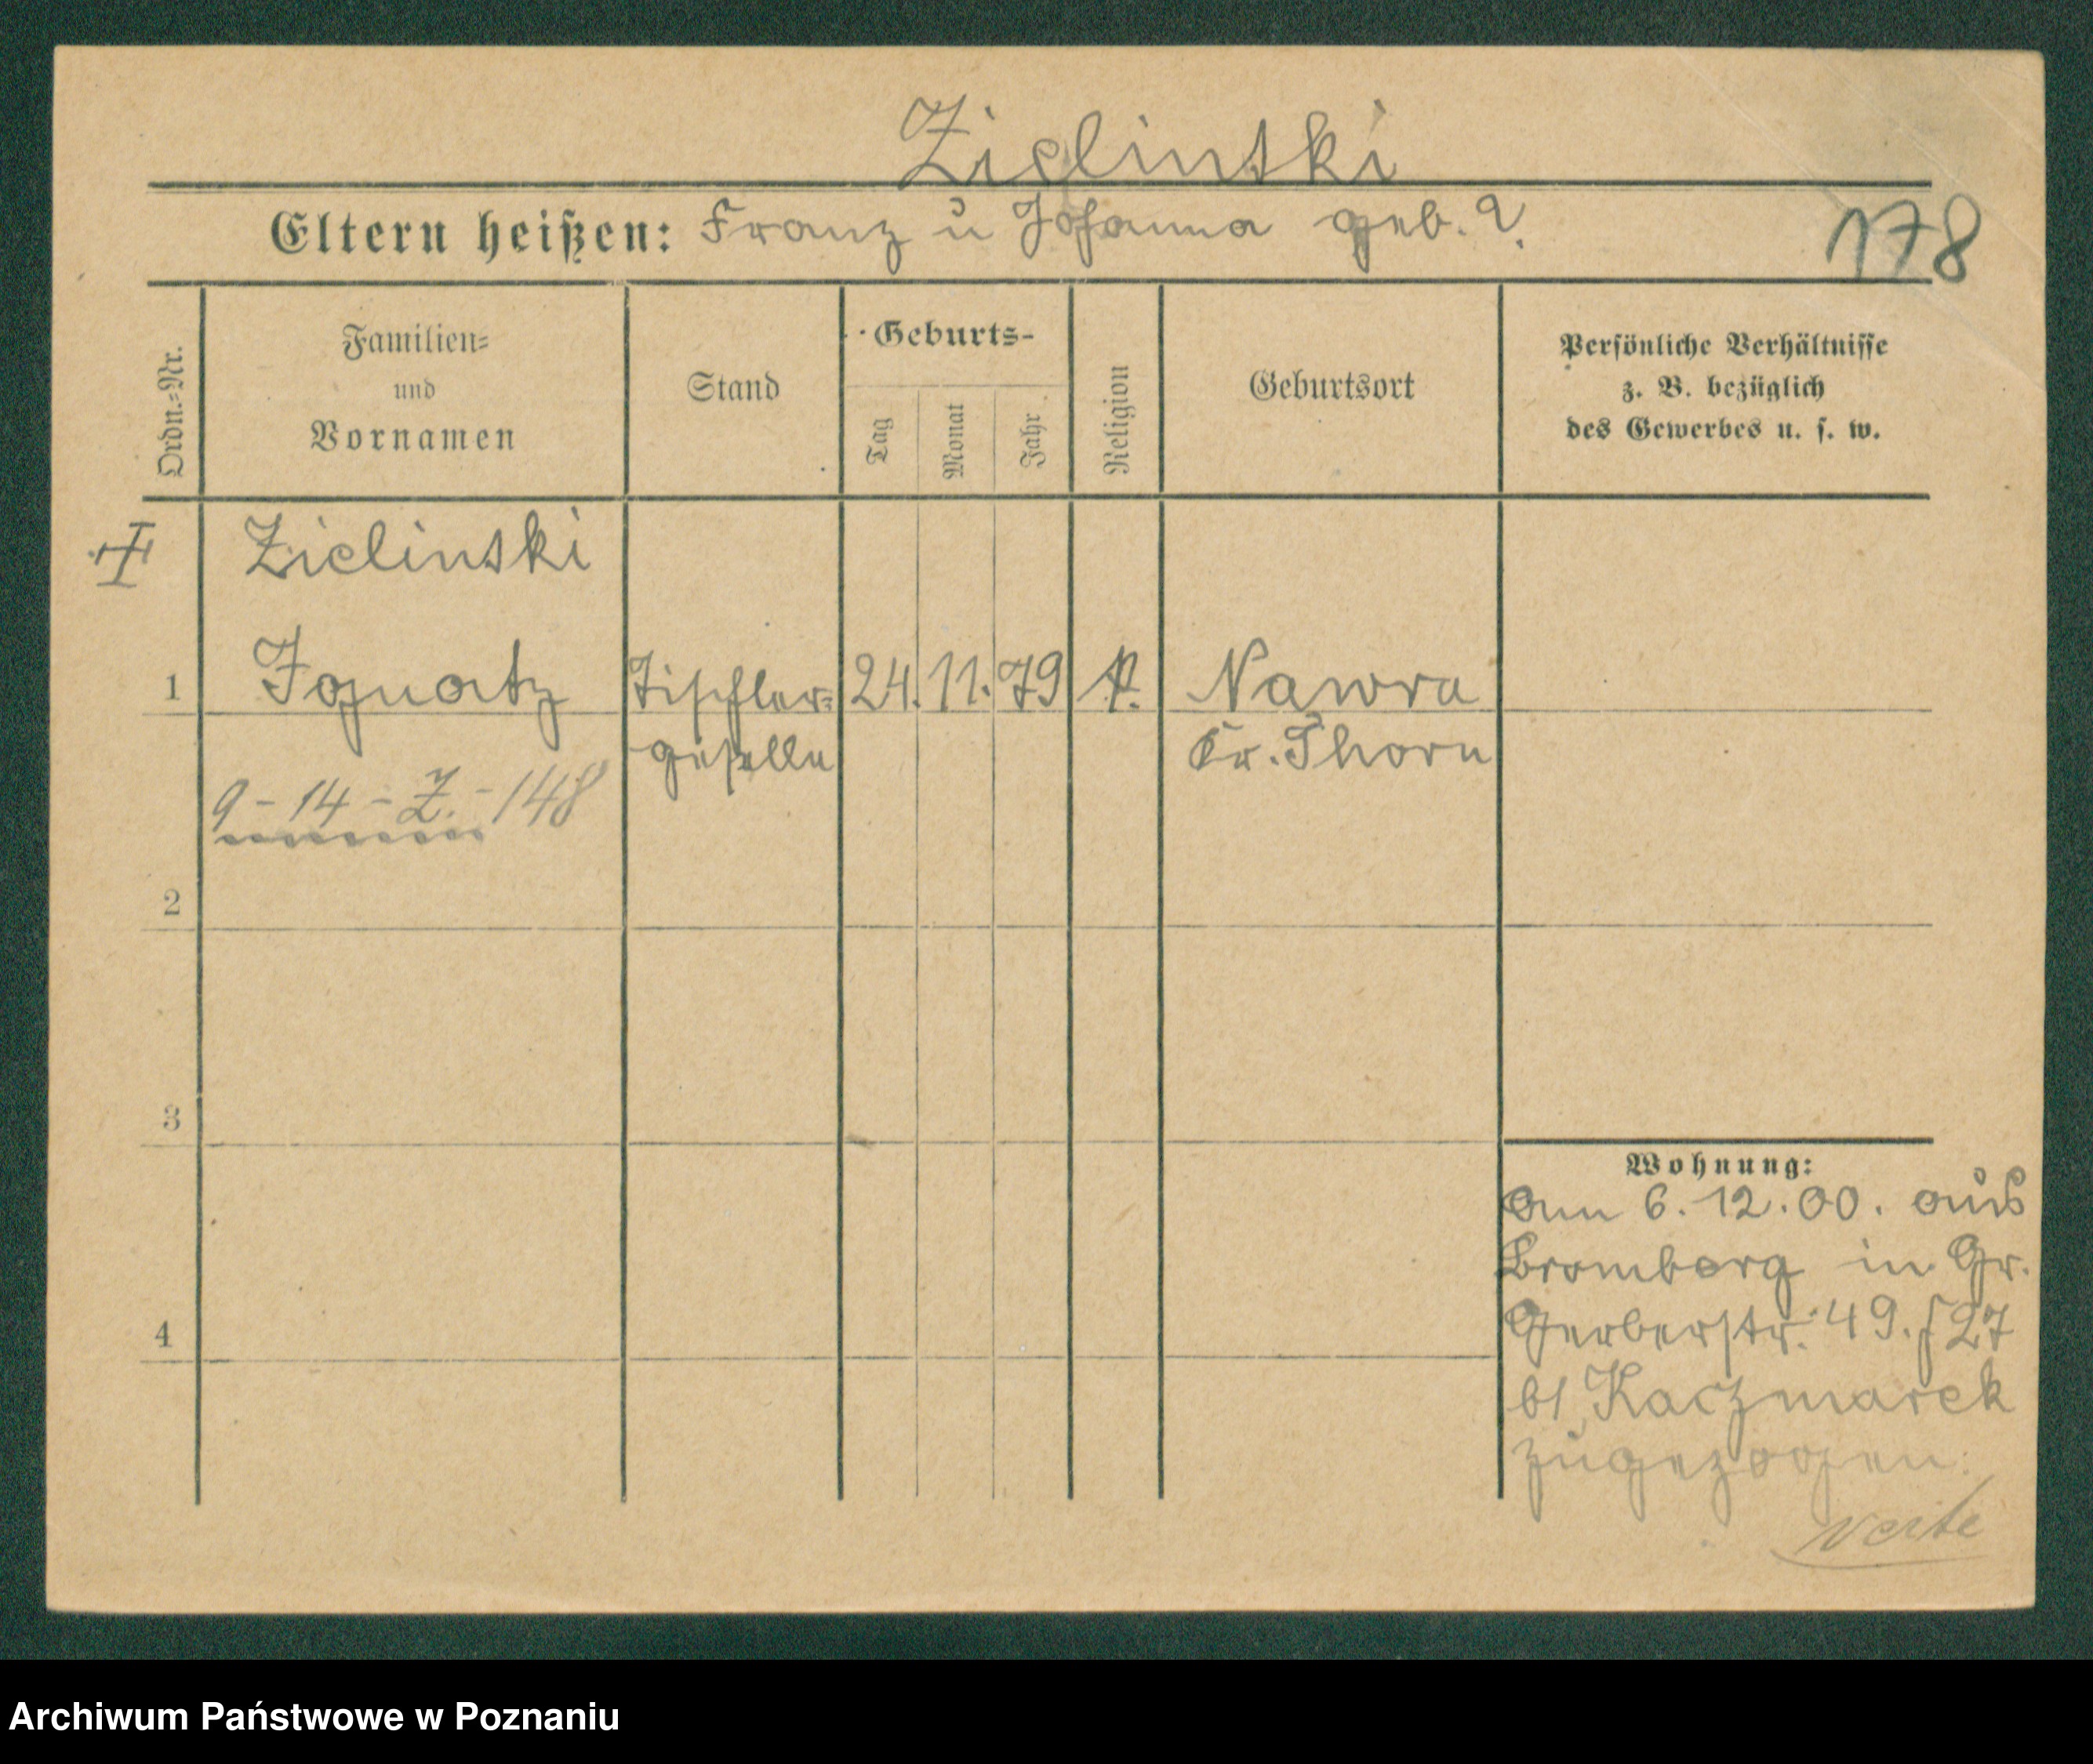 Zielinski
Eltern heißen: Franz u Johanna geb. ?
178
Ordn.-Nr.
Familien=
und
Vornamen
Stand
Geburts-
Tag
Monat
Jahr
Religion
Geburtsort
Persönliche Verhältnisse
z. B. bezüglich
des Gewerbes u. s. w.
Zielinski
1 Ignatz Tischler= 24. 11. 79 Nawra
geselle Kr. Thorn
9 - 14 - Z. - 148
2
3
4
Wohnung:
Am 6. 12. 00. aus
Bromberg in Gr.
Gerberstr. 49. 27
bei Kaczmarek
zugezogen.
verte
Archiwum Państwowe w Poznaniu